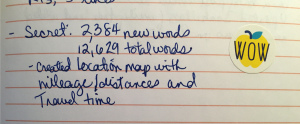 - Secret: 2,384 new words
12,629 total words
- Created location map with
mileage/distances and
Travel time
WOW